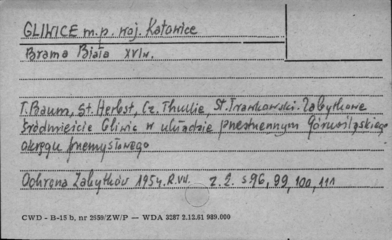 GLIWICE m.p. woj. Katowice
Brama Biała XVIw.
T. Baum, St. Herbst, Cz. Thullie, St. Trawkowski. Zabytkowe
śródmieście Gliwic w układzie przestrzennym górnośląskiego
okręgu przemysłowego
Ochrona Zabytków 1954. R. VII. z. 2. s 96, 99, 100, 111
CWD - B-15 b, nr 2659/ZW/P — WDA 3287 2.12.61 989.000